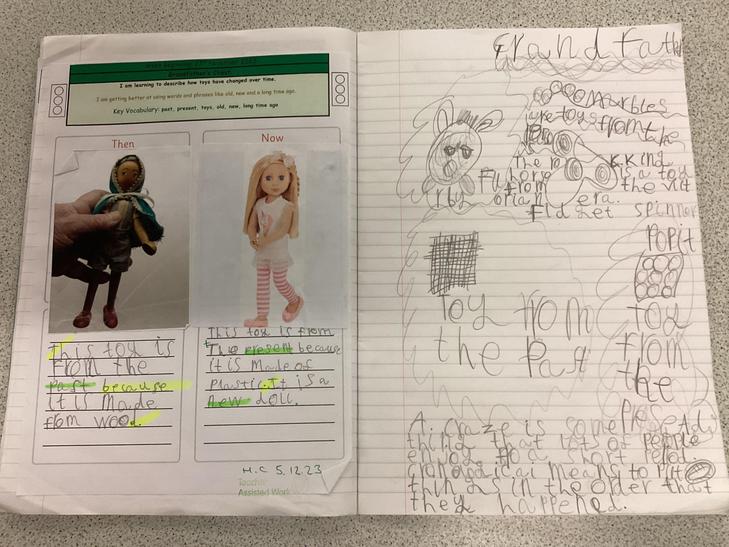 Grandfather's Chest
I am learning to describe how toys have changed over time.
I am getting better at using words and phrases like old, new and a long time ago.
Key Vocabulary: past, present, toys, old, new, long time ago
Then
Now
This toy is
from the
past because
it is made
from wood.
This toy is from
The present because
it is made of
Plastic. It is a
new doll.
H.C 5.12.23
Teacher
Assisted Work
Grandfath
marbles
are toys from
The ro k.king
horse is a toy
from the vict
orian era.
Fidget spinner
Popit
Toy from
the Past
toy
from
the
Present
A craze is something
that lots of people
enjoy for a short
means to put
things in the order that
they happened.